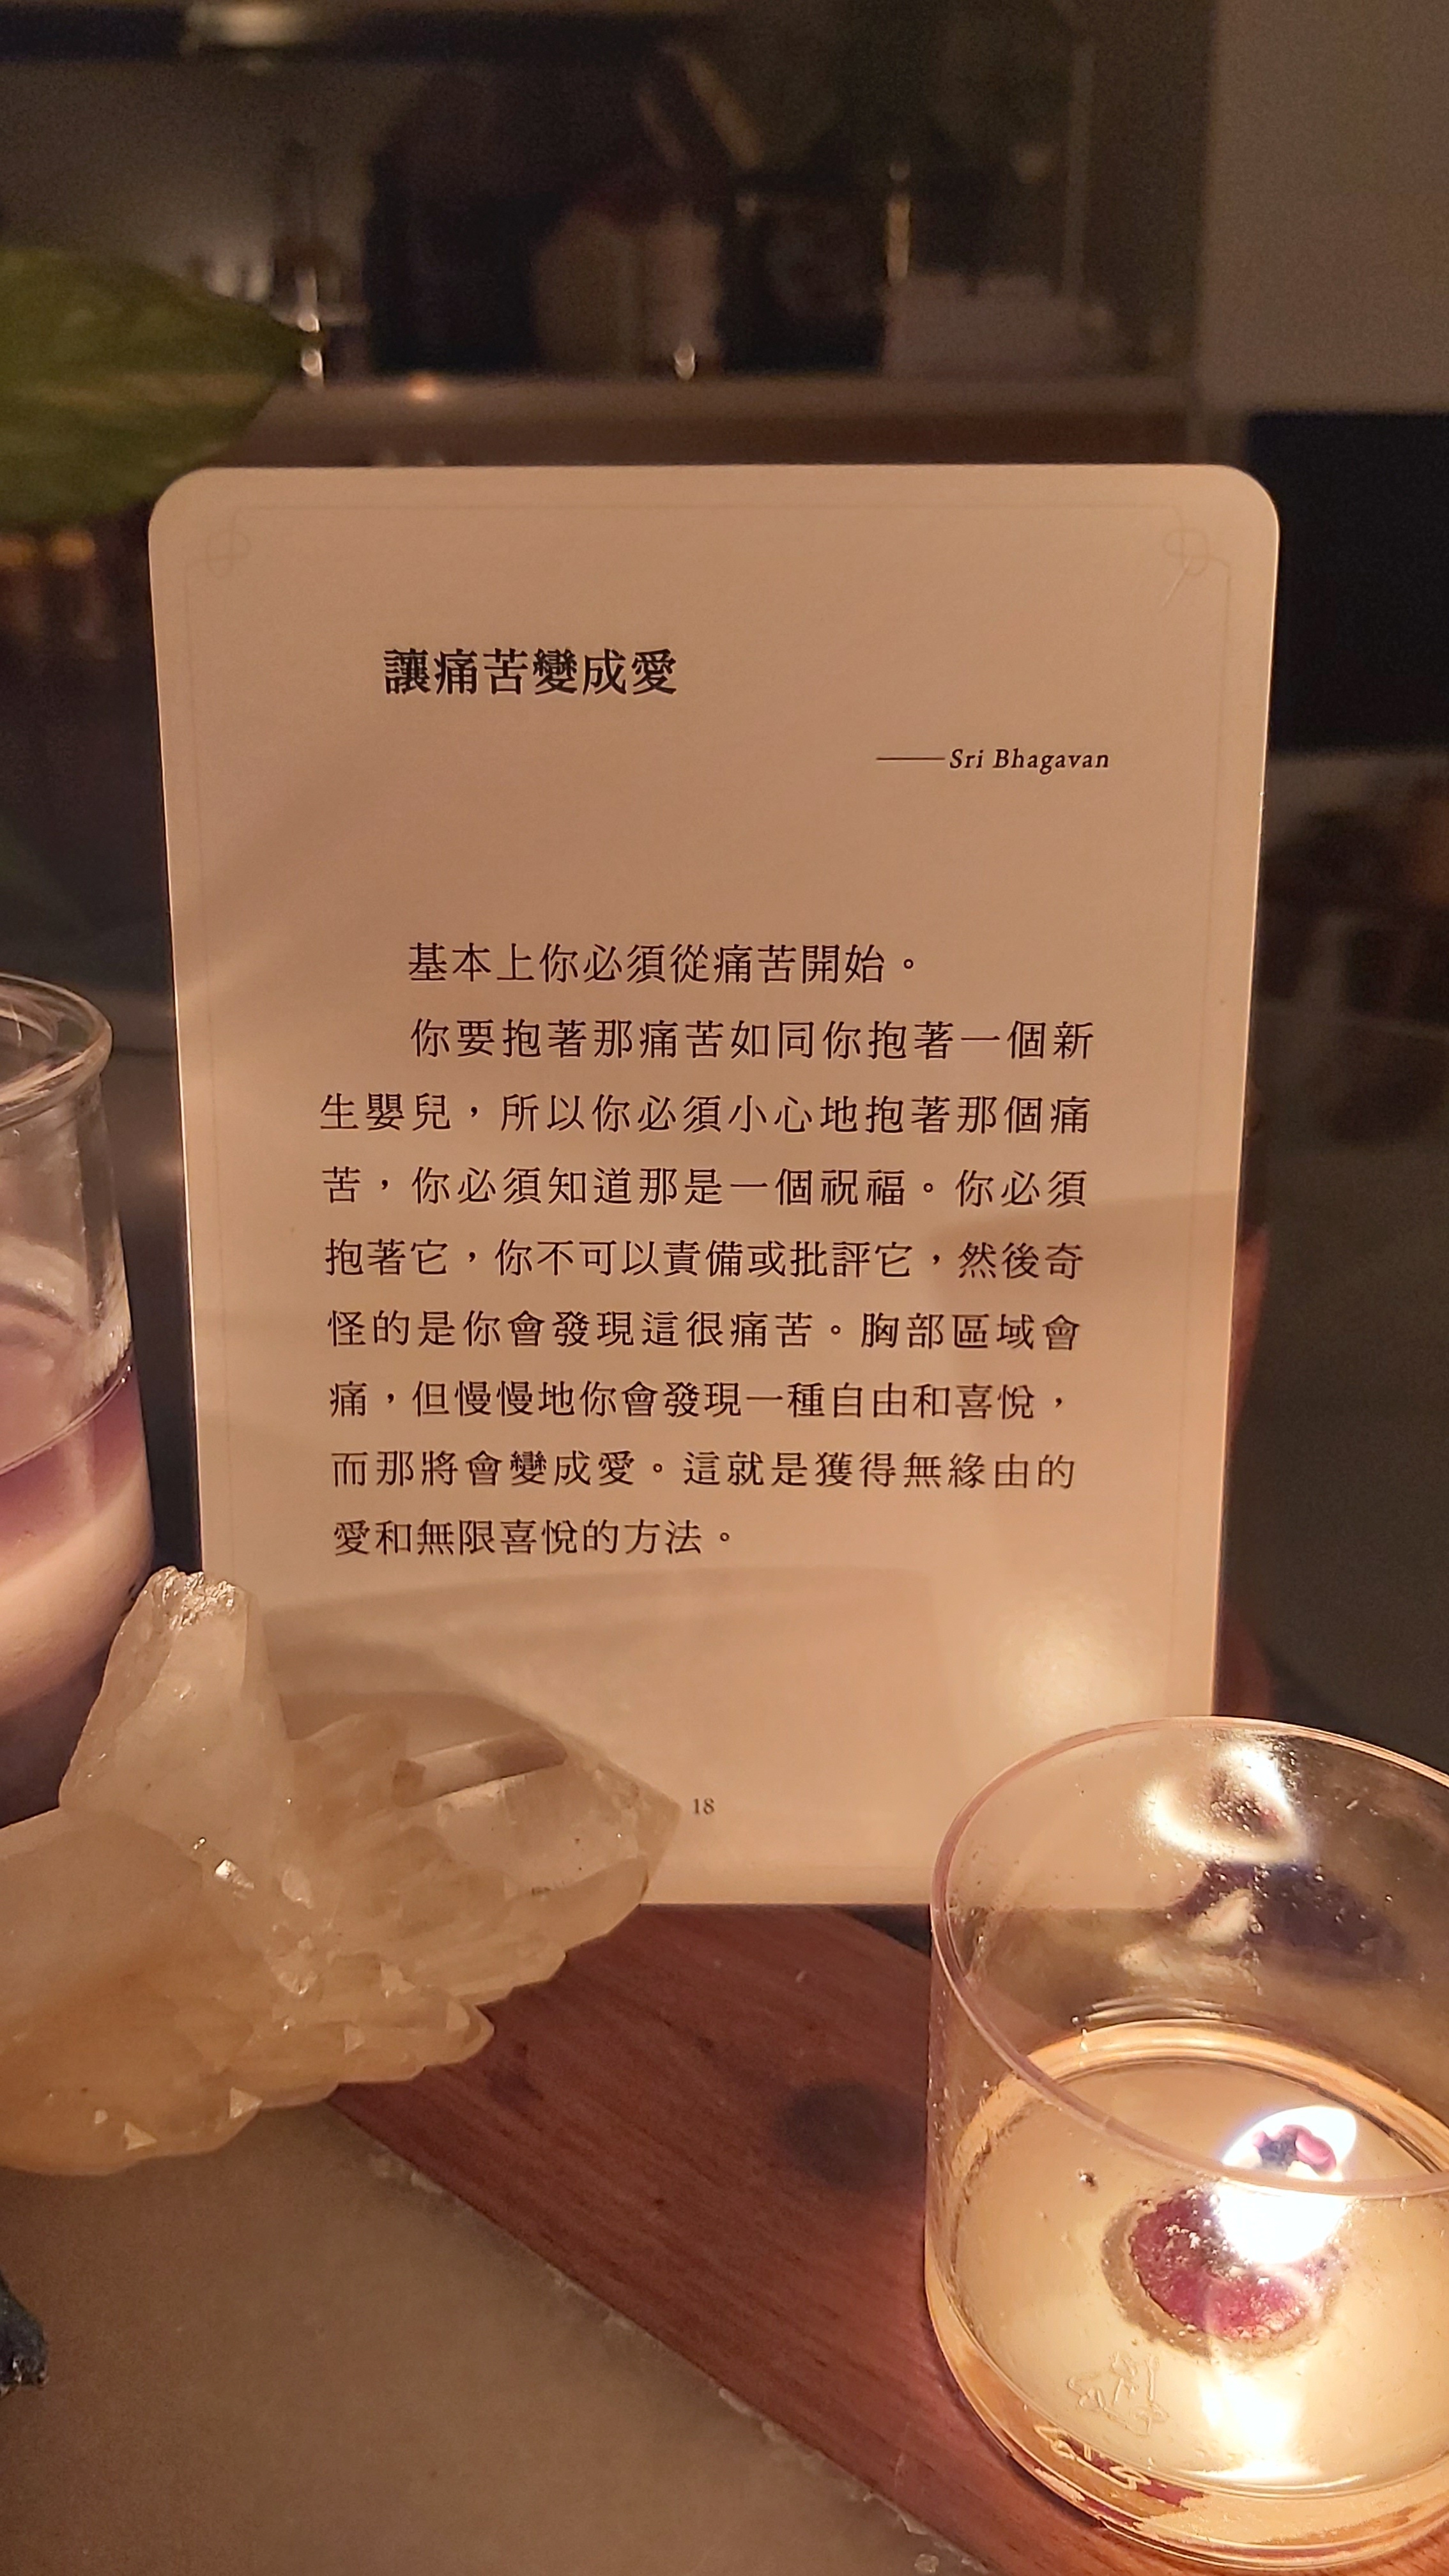 讓痛苦變成愛
——Sri Bhagavan
基本上你必須從痛苦開始。
你要抱著那痛苦如同你抱著一個新
生嬰兒，所以你必須小心地抱著那個痛
苦，你必須知道那是一個祝福。你必須
抱著它，你不可以責備或批評它，然後奇
怪的是你會發現這很痛苦。胸部區域會
痛，但慢慢地你會發現一種自由和喜悅，
而那將會變成愛。這就是獲得無緣由的
愛和無限喜悅的方法。
18